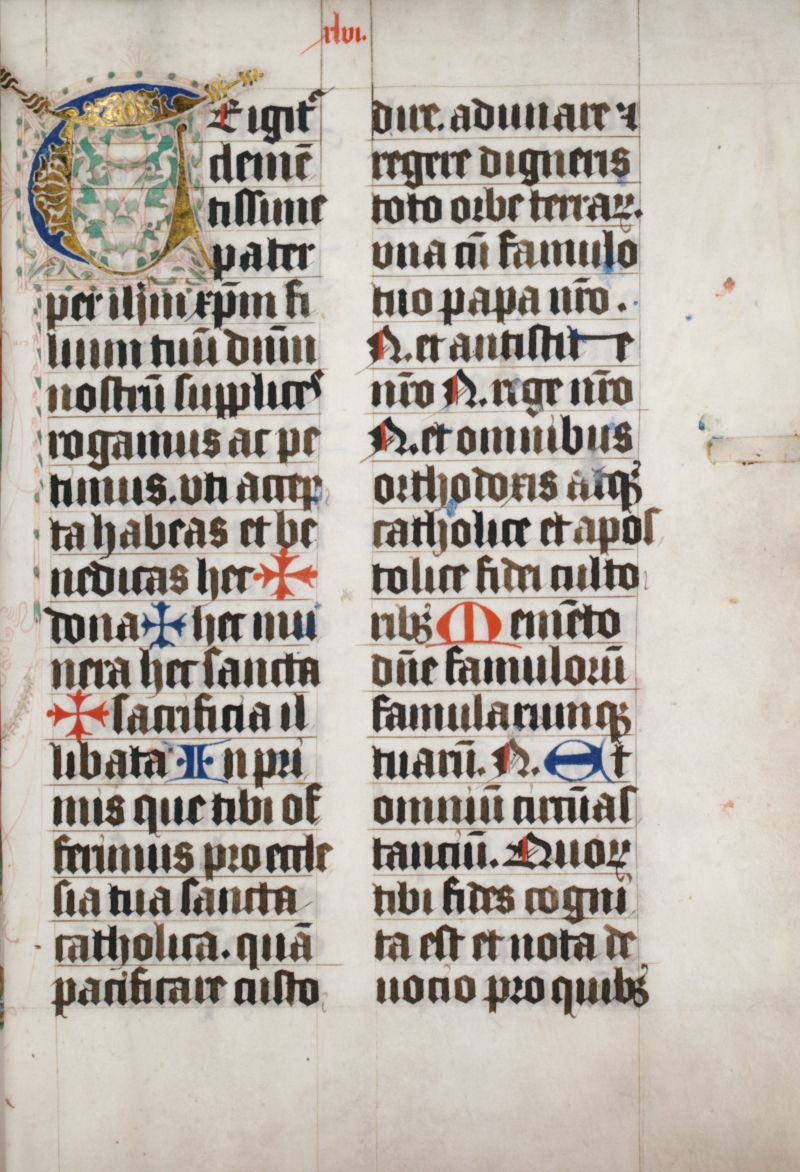 xlvi.
TE igit᷑
clemē
tissime
pater
per ih̄m xp̄m fi
lium tuū dn̄m
nostrū supplices
rogamus ac pe
timus. vti accep
ta habeas et be
nedicas hec ✠
dona ✠ hec mu
nera hec sancta
✠ sacrificia il
libata In pri
mis que tibi of
ferimus pro eccle
sia tua sancta
catholica. quā
pacificare custo
dire. adunare ⁊
regere digneris
toto orbe terraꝝ.
vna cū famulo
tuo papa nr̄o.
N. et antistite
nr̄o N. rege nr̄o
N. et omnibus
orthodoxis atqꝫ
catholice et apos
tolice fidei culto
ribꝫ Memēto
dn̄e famulorū
famularumqꝫ
tuarū. N. Et
omniū circūas
tanciū. Quoꝝ
tibi fides cogni
ta est et nota de
uocio pro quibꝫ